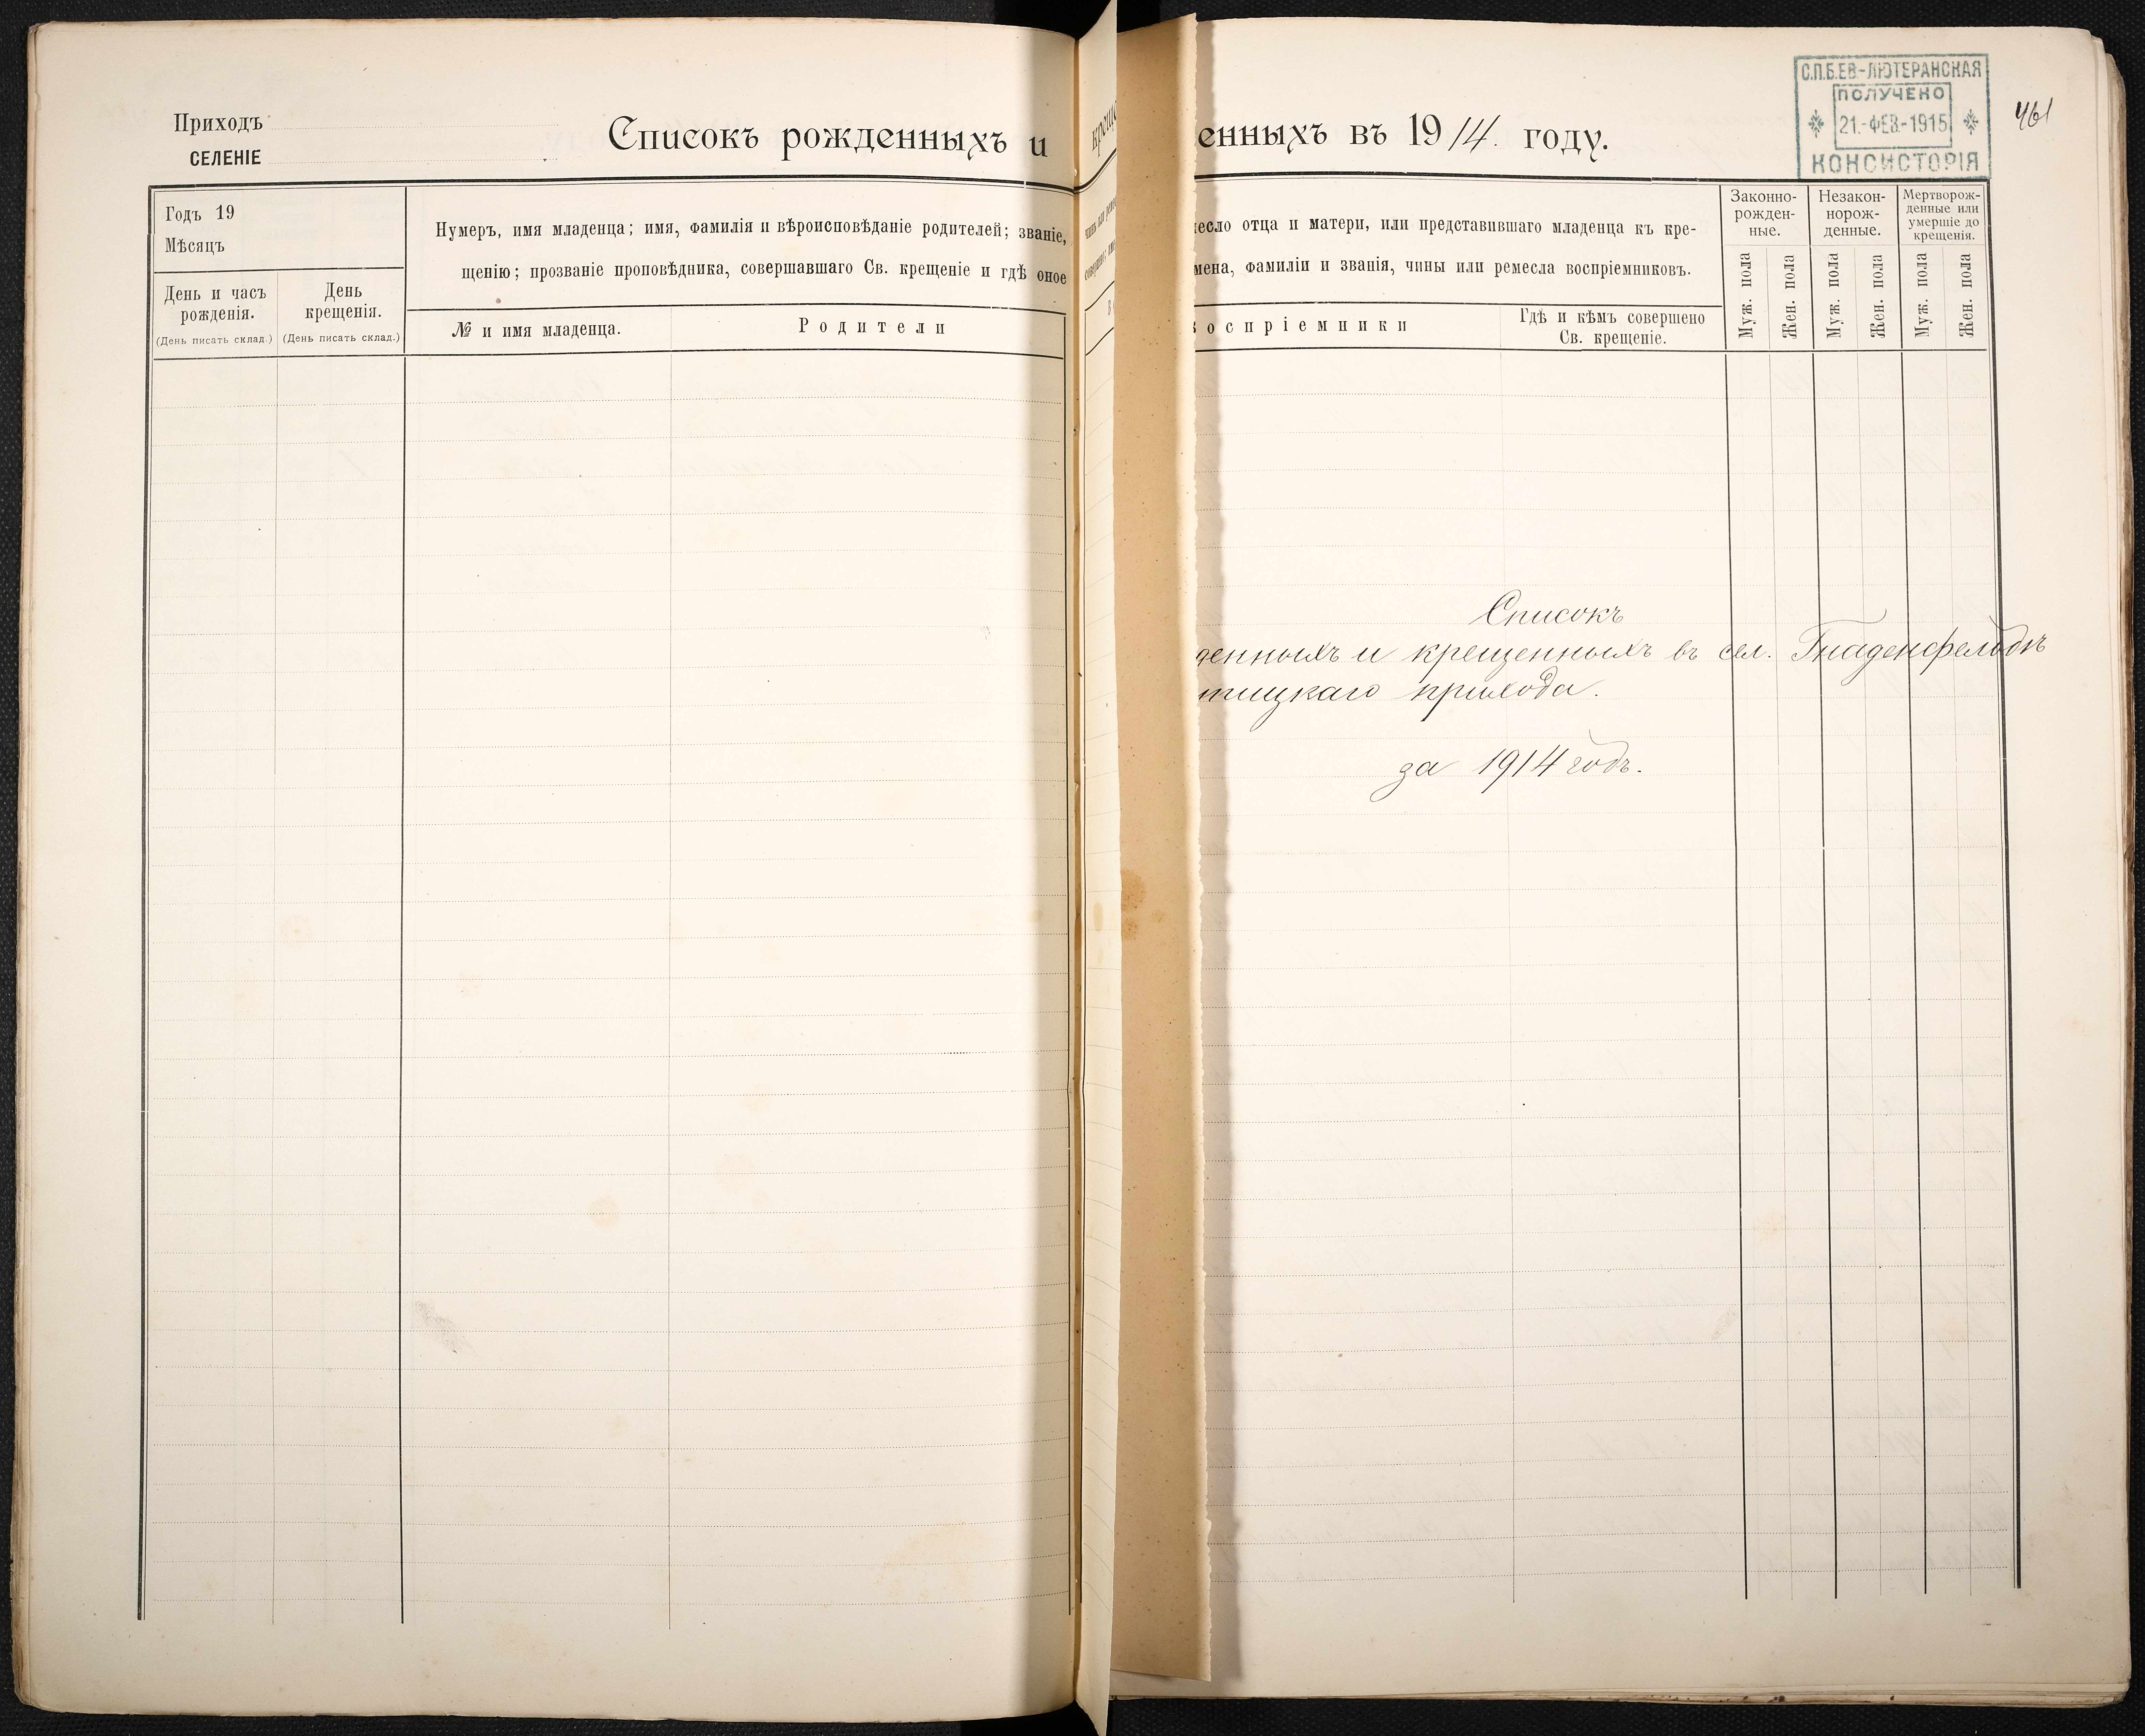 Приходъ
СЕЛЕНІЕ
Списокъ рожденныхъ и
Годъ 19
Мѣсяцъ
День и часъ рожденія.
(День писать склад.)
День крещенія.
(День писать склад.)
Нумеръ, имя младенца; имя, фамилія и вѣроисповѣданіе родителей; званіе,
щенію; прозваніе проповѣдника, совершавшаго Св. крещеніе и гдѣ оное
№ и имя младенца.
Родители
енныхъ въ 1914. году.
С.П.Б.ЕВ-ЛЮТЕРАНСКАЯ
ПОЛУЧЕНО
21.-ФЕВ.-1915
КОНСИСТОРІЯ
461
есло отца и матери, или представившаго младенца къ кре-
мена, фамиліи и званія, чины или ремесла воспріемниковъ.
оспріемники
Гдѣ и кѣмъ совершено
Св. крещеніе.
Законно-
рожден-
ные.
Незакон-
норож-
денные.
Мертворож-
денные или
умершіе до
крещенія.
Муж. пола
Жен. пола
Муж. пола
Жен. пола
Муж. пола
Жен. пола
Списокъ
денныхъ и крещенныхъ въ сел. Гнаденфельдѣ
тицкаго прихода.
за 1914 годъ.